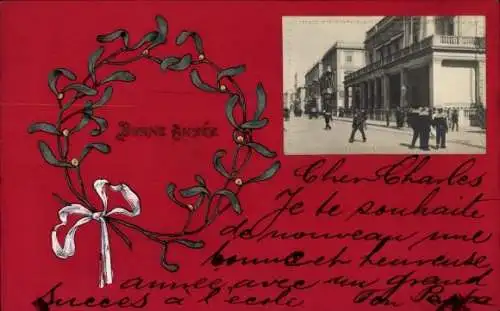 BONNE ANNÉE
Cher Charles
Je te souhaite
de nouveau une
bonne et heureuse
année avec un grand
succès à l'école Ton Papa